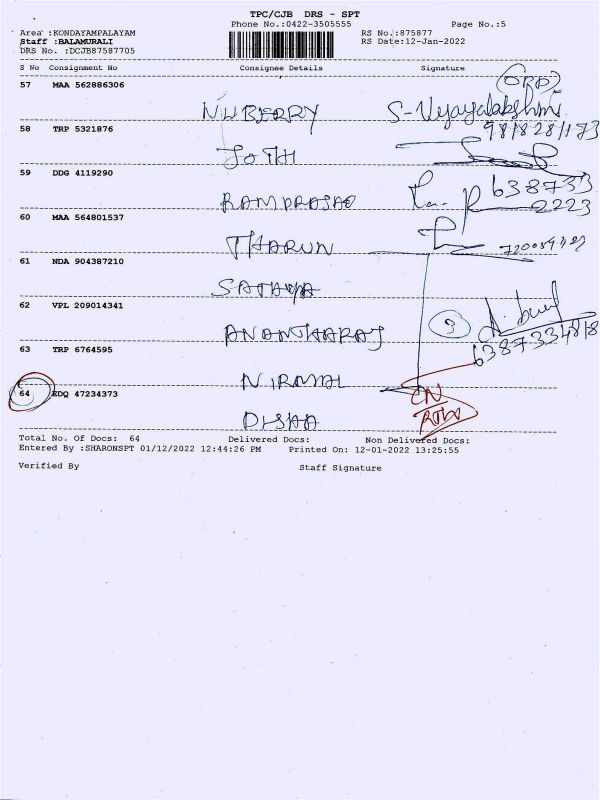 TPC/CJB DRS - SPT
Phone No.:0422-3505555 Page No.:5
Area :KONDAYAMPALAYAM RS No.:875877
Staff :BALAMURALI RS Date:12-Jan-2022
DRS No. :DCJB87587705
S No Consignment No Consignee Details Signature
57 MAA 562886306
NUBERRY S-Vijayalakshmi
9818281173
58 TRP 5321876
JOTHI
59 DDG 4119290
RAMPRASAD
60 MAA 564801537
THARUN
61 NDA 904387210
SATHYA
62 VPL 209014341
ANANTHARAJ
6387334818
63 TRP 6764595
NIRMAL
64 EDQ 47234373
DISHA
Total No. Of Docs: 64 Delivered Docs: Non Delivered Docs:
Entered By :SHARONSPT 01/12/2022 12:44:26 PM Printed On: 12-01-2022 13:25:55
Verified By Staff Signature